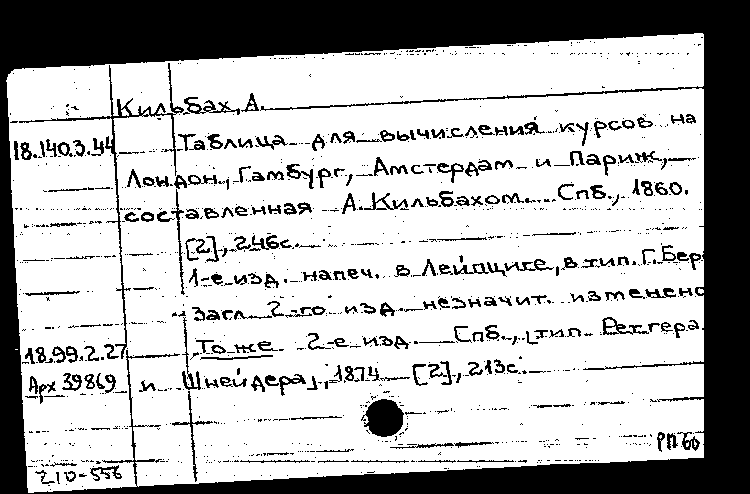 Кильбах, А.
18.140.3.44 Таблица для вычисления курсов на
Лондон, Гамбург, Амстердам и Париж,
составленная А. Кильбахом. Спб., 1860.
[2], 246с.
1-е изд. напеч. в Лейпциге, в тип. Г. Бер
Загл. 2-го изд. незначит. изменено
18.99.2.27 То же 2-е изд. Спб., [тип. Ретгера
Арх 39869 и Шнейдера], 1874 [2], 213с.
РП 60
210-556